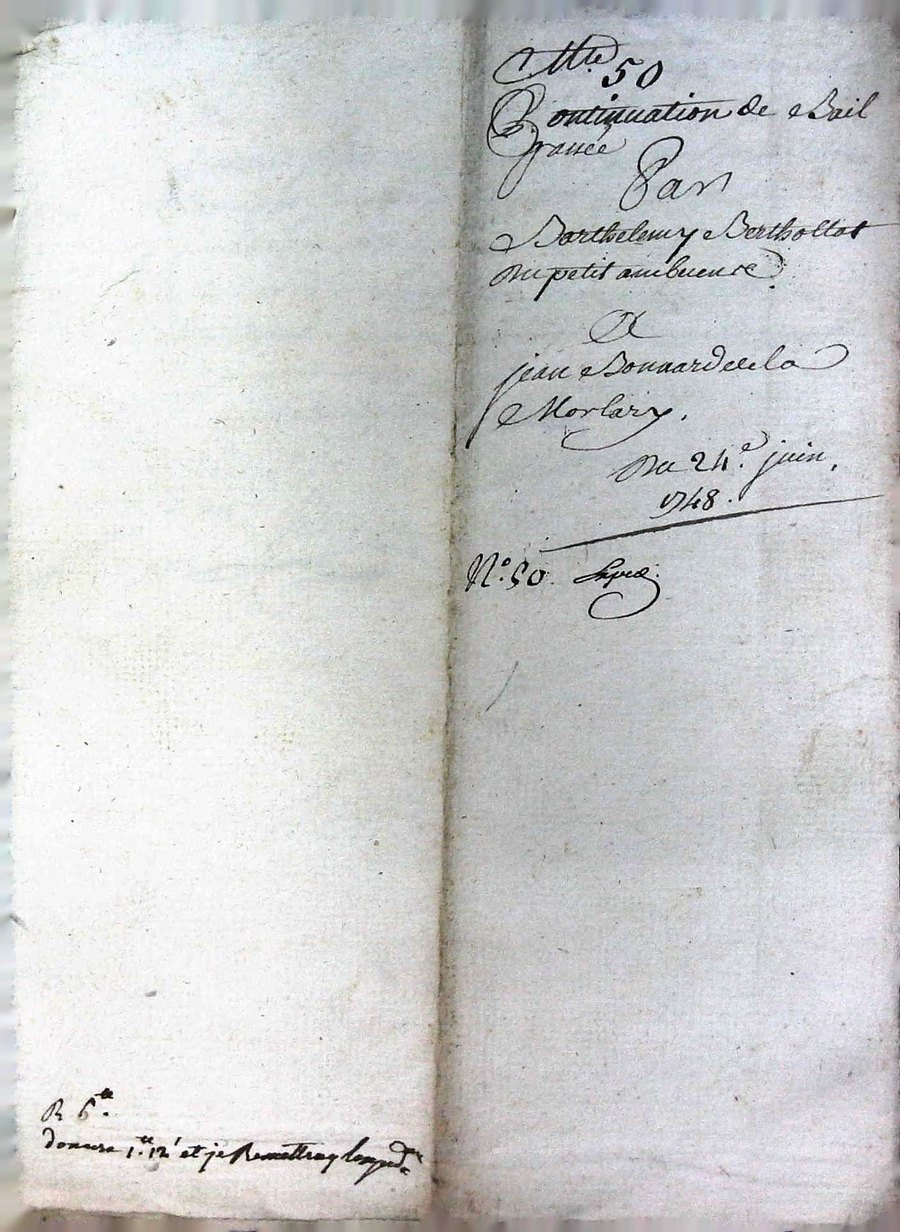 Cotte 50
Continuation de Bail
passée
Par
Barthelemy Bertholtot
Du petit ambuence
A
jean Bonnard de la
Morlary.
Du 24.e juin,
1748.
N.o 50. Exped.
R 6.tt
donnera 1.tt 12 s et je Remettray lexped.on